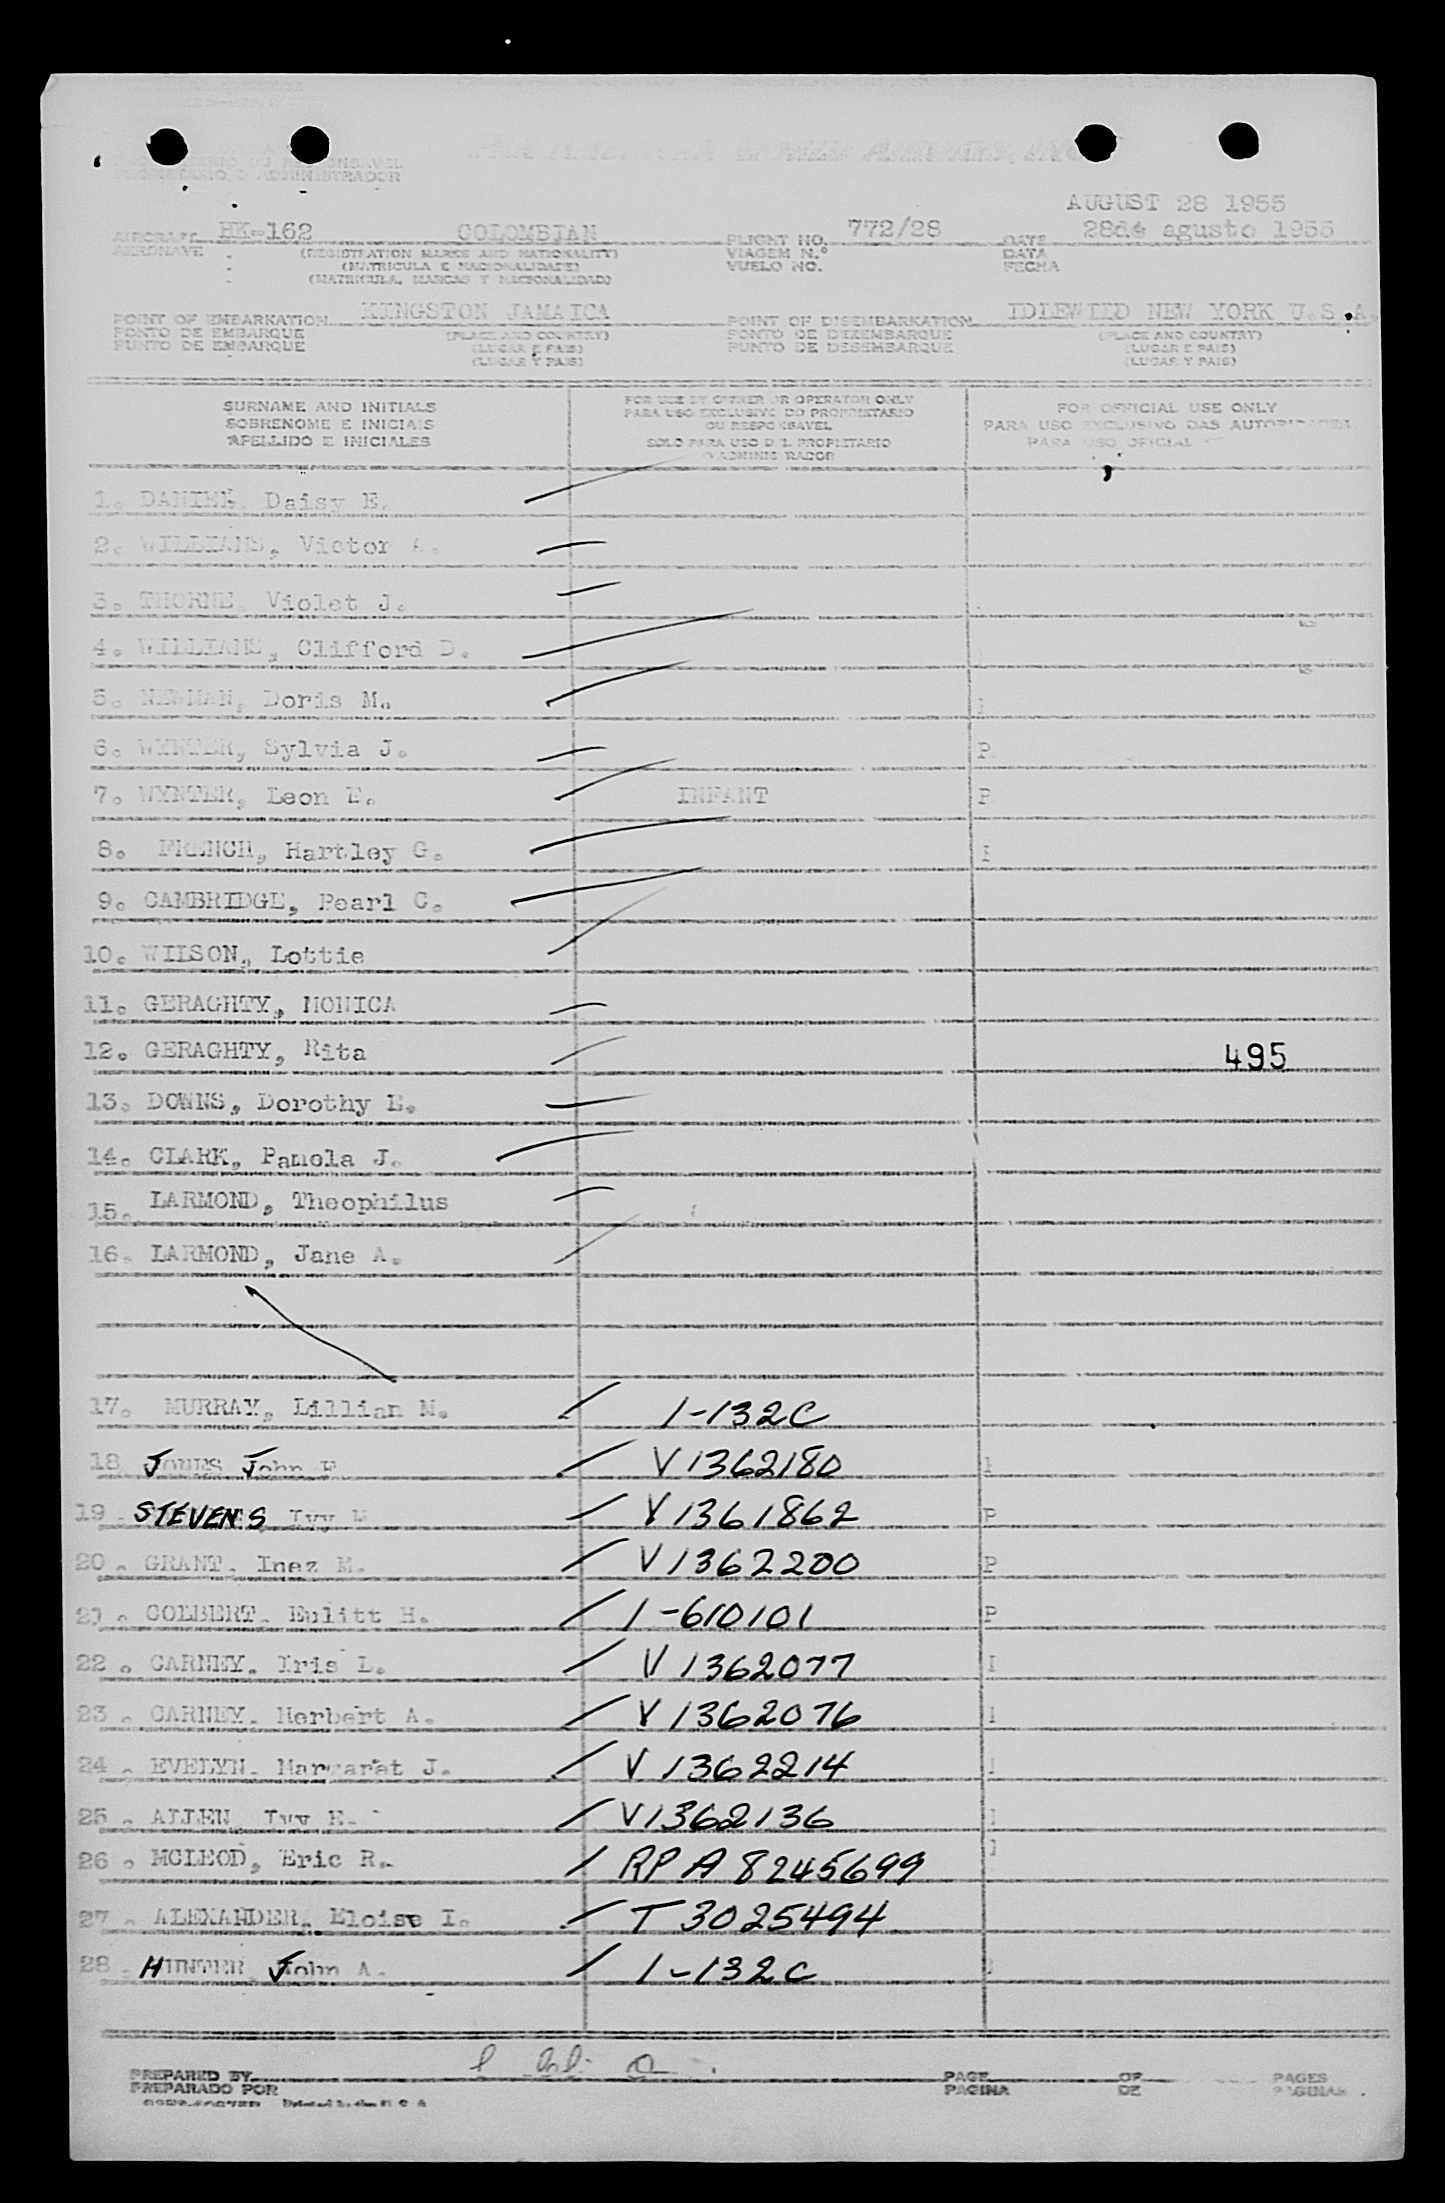 PROPIETARIO O ADMINISTRADOR
AUGUST 28 1955
AIRCRAFT HK-162 COLOMBIAN FLIGHT NO. 772/28 DATE 28de agusto 1955
AERONAVE (REGISTRATION MARKS AND NATIONALITY) VIAGEM N.º DATA
(MATRICULA E NACIONALIDADE) VUELO NO. FECHA
(MATRICULA, MARCAS Y NACIONALIDAD)
POINT OF EMBARKATION KINGSTON JAMAICA POINT OF DISEMBARKATION IDLEWILD NEW YORK U.S.A.
PONTO DE EMBARQUE (PLACE AND COUNTRY) PONTO DE DEZEMBARQUE (PLACE AND COUNTRY)
PUNTO DE EMBARQUE (LUGAR E PAIS) PUNTO DE DESEMBARQUE (LUGAR E PAIS)
(LUGAR Y PAIS) (LUGAR Y PAIS)
SURNAME AND INITIALS FOR USE BY OWNER OR OPERATOR ONLY FOR OFFICIAL USE ONLY
SOBRENOME E INICIAIS PARA USO EXCLUSIVO DO PROPRIETARIO PARA USO EXCLUSIVO DAS
APELLIDO E INICIALES OU RESPONSAVEL PARA USO OFICIAL
SOLO PARA USO DEL PROPIETARIO
O ADMINISTRADOR
1. DANIEL, Daisy E.
2. WILLIAMS, Victor A.
3. THORNE, Violet J.
4. WILLIAMS, Clifford D.
5. NEWMAN, Doris M.
6. WYNTER, Sylvia J. P
7. WYNTER, Leon E. INFANT P
8. FRENCH, Hartley G.
9. CAMBRIDGE, Pearl C.
10. WILSON, Lottie
11. GERAGHTY, MONICA
12. GERAGHTY, Rita 495
13. DOWNS, Dorothy E.
14. CLARK, Pamela J.
15. LARMOND, Theophilus
16. LARMOND, Jane A.
17. MURRAY, Lillian M. 1-132C
18 JONES John V1362180
19. STEVENS Ivy V1361862 P
20. GRANT, Inez M. V1362200 P
21. COLBERT, Eulitt H. 1-610101 P
22. CARNEY, Iris L. V1362077 I
23. CARNEY, Herbert A. V1362076
24. EVELYN, Margaret J. V1362214
25. ALLEN Ivy E. V1362136
26. MCLEOD, Eric R. RP A8245699
27. ALEXANDER, Eloise I. T3025494
28. HUNTER John A. 1-132C
PREPARED BY PAGE OF PAGES
PREPARADO POR PAGINA DE PAGINAS